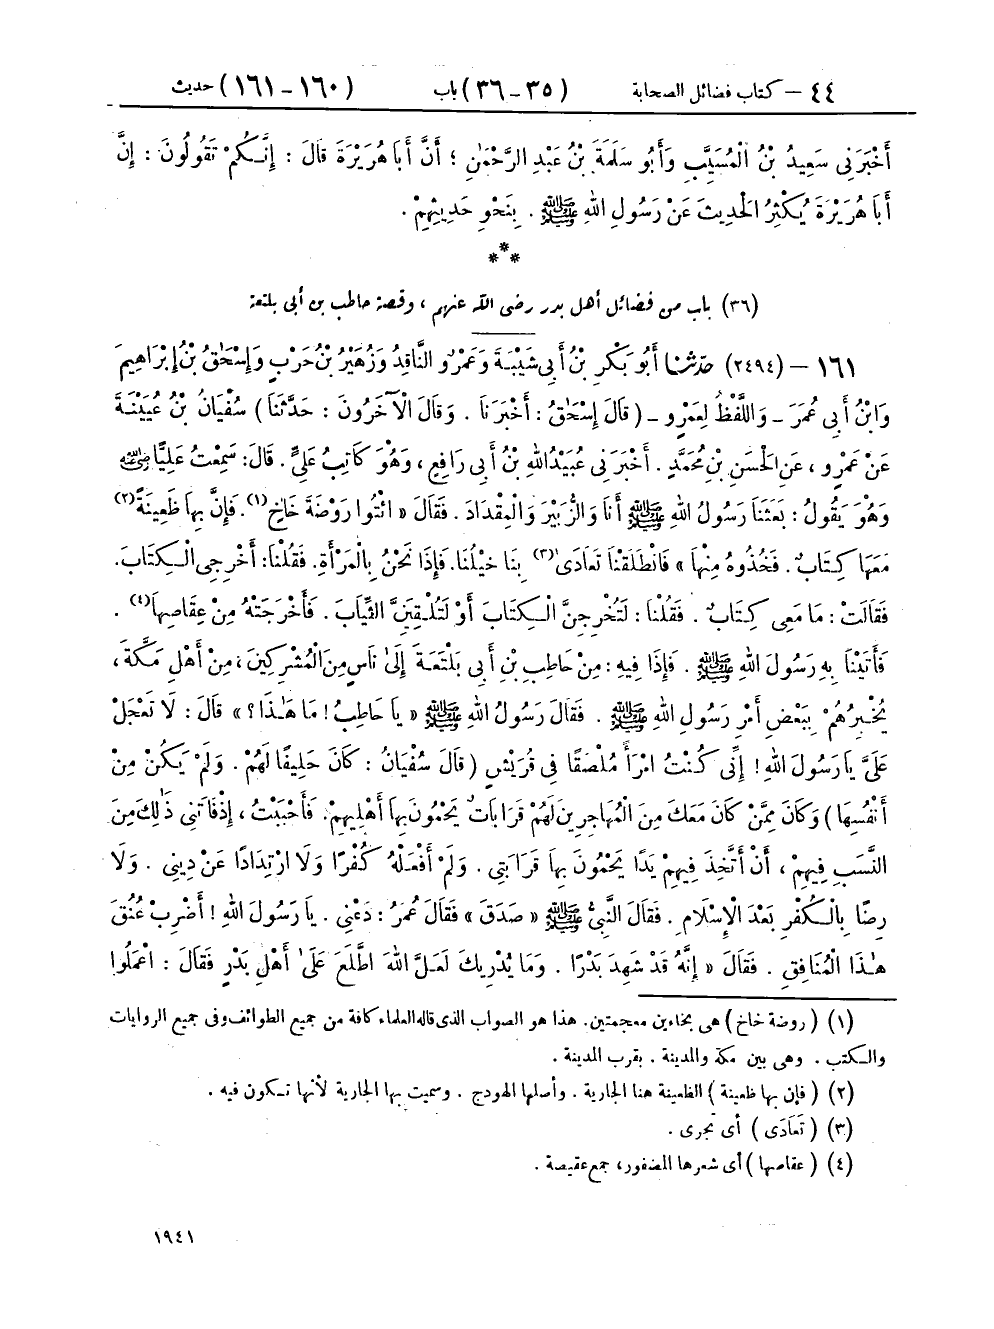 ٤٤ – كتاب فضائل الصحابة (٣٥ – ٣٦) باب (١٦٠ – ١٦١) حديث
أَخْبَرَنِى سَعِيدُ بْنُ الْمُسَيَّبِ وَأَبُو سَلَمَةَ بْنُ عَبْدِ الرَّحْمٰنِ ؛ أَنَّ أَبَا هُرَيْرَةَ قَالَ : إِنَّكُمْ تَقُولُونَ : إِنَّ
أَبَا هُرَيْرَةَ يُكْثِرُ الْحَدِيثَ عَنْ رَسُولِ اللهِ ﷺ . بِنَحْوِ حَدِيثِهِمْ .
***
(٣٦) باب من فضائل أهل بدر رضى الله عنهم ، وقصة حاطب بن أبى بلتعة
١٦١ – (٢٤٩٤) حدّثنا أَبُو بَكْرِ بْنُ أَبِى شَيْبَةَ وَعَمْرٌو النَّاقِدُ وَزُهَيْرُ بْنُ حَرْبٍ وَإِسْحَاقُ بْنُ إِبْرَاهِيمَ
وَابْنُ أَبِى عُمَرَ – وَاللَّفْظُ لِعَمْرٍو – ( قَالَ إِسْحَاقُ : أَخْبَرَنَا . وَقَالَ الْآخَرُونَ : حَدَّثَنَا ) سُفْيَانُ بْنُ عُيَيْنَةَ
عَنْ عَمْرٍو ، عَنِ الْحَسَنِ بْنِ مُحَمَّدٍ . أَخْبَرَنِى عُبَيْدُاللهِ بْنُ أَبِى رَافِعٍ ، وَهُوَ كَاتِبُ عَلِىٍّ . قَالَ : سَمِعْتُ عَلِيًّا رضي الله عنه
وَهُوَ يَقُولُ : بَعَثَنَا رَسُولُ اللهِ ﷺ أَنَا وَالزُّبَيْرَ وَالْمِقْدَادَ . فَقَالَ « ائْتُوا رَوْضَةَ خَاخٍ(١) . فَإِنَّ بِهَا ظَعِينَةً(٢)
مَعَهَا كِتَابٌ . فَخُذُوهُ مِنْهَا » فَانْطَلَقْنَا تَعَادَىٰ(٣) بِنَا خَيْلُنَا . فَإِذَا نَحْنُ بِالْمَرْأَةِ . فَقُلْنَا : أَخْرِجِى الْكِتَابَ .
فَقَالَتْ : مَا مَعِى كِتَابٌ . فَقُلْنَا : لَتُخْرِجِنَّ الْكِتَابَ أَوْ لَتُلْقِيَنَّ الثِّيَابَ . فَأَخْرَجَتْهُ مِنْ عِقَاصِهَا(٤) .
فَأَتَيْنَا بِهِ رَسُولَ اللهِ ﷺ . فَإِذَا فِيهِ : مِنْ حَاطِبِ بْنِ أَبِى بَلْتَعَةَ إِلَىٰ نَاسٍ مِنَ الْمُشْرِكِينَ ، مِنْ أَهْلِ مَكَّةَ ،
يُخْبِرُهُمْ بِبَعْضِ أَمْرِ رَسُولِ اللهِ ﷺ . فَقَالَ رَسُولُ اللهِ ﷺ « يَا حَاطِبُ ! مَا هَٰذَا ؟ » قَالَ : لَا تَعْجَلْ
عَلَىَّ يَا رَسُولَ اللهِ ! إِنِّى كُنْتُ امْرَأً مُلْصَقًا فِى قُرَيْشٍ ( قَالَ سُفْيَانُ : كَانَ حَلِيفًا لَهُمْ . وَلَمْ يَكُنْ مِنْ
أَنْفُسِهَا ) وَكَانَ مِمَّنْ كَانَ مَعَكَ مِنَ الْمُهَاجِرِينَ لَهُمْ قَرَابَاتٌ يَحْمُونَ بِهَا أَهْلِيهِمْ . فَأَحْبَبْتُ ، إِذْ فَاتَنِى ذَٰلِكَ مِنَ
النَّسَبِ فِيهِمْ ، أَنْ أَتَّخِذَ فِيهِمْ يَدًا يَحْمُونَ بِهَا قَرَابَتِى . وَلَمْ أَفْعَلْهُ كُفْرًا وَلَا ارْتِدَادًا عَنْ دِينِى . وَلَا
رِضًا بِالْكُفْرِ بَعْدَ الْإِسْلَامِ . فَقَالَ النَّبِىُّ ﷺ « صَدَقَ » فَقَالَ عُمَرُ : دَعْنِى . يَا رَسُولَ اللهِ ! أَضْرِبْ عُنُقَ
هَٰذَا الْمُنَافِقِ . فَقَالَ « إِنَّهُ قَدْ شَهِدَ بَدْرًا . وَمَا يُدْرِيكَ لَعَلَّ اللهَ اطَّلَعَ عَلَىٰ أَهْلِ بَدْرٍ فَقَالَ : اعْمَلُوا
(١) ( روضة خاخ ) هى بخاءين معجمتين . هذا هو الصواب الذى قاله العلماء كافة من جميع الطوائف وفى جميع الروايات
والكتب . وهى بين مكة والمدينة . بقرب المدينة .
(٢) ( فإن بها ظعينة ) الظعينة هنا الجارية . وأصلها الهودج . وسميت بها الجارية لأنها تكون فيه .
(٣) ( تَعَادَى ) أى تجرى .
(٤) ( عقاصها ) أى شعرها المضفور ، جمع عقيصة .
١٩٤١